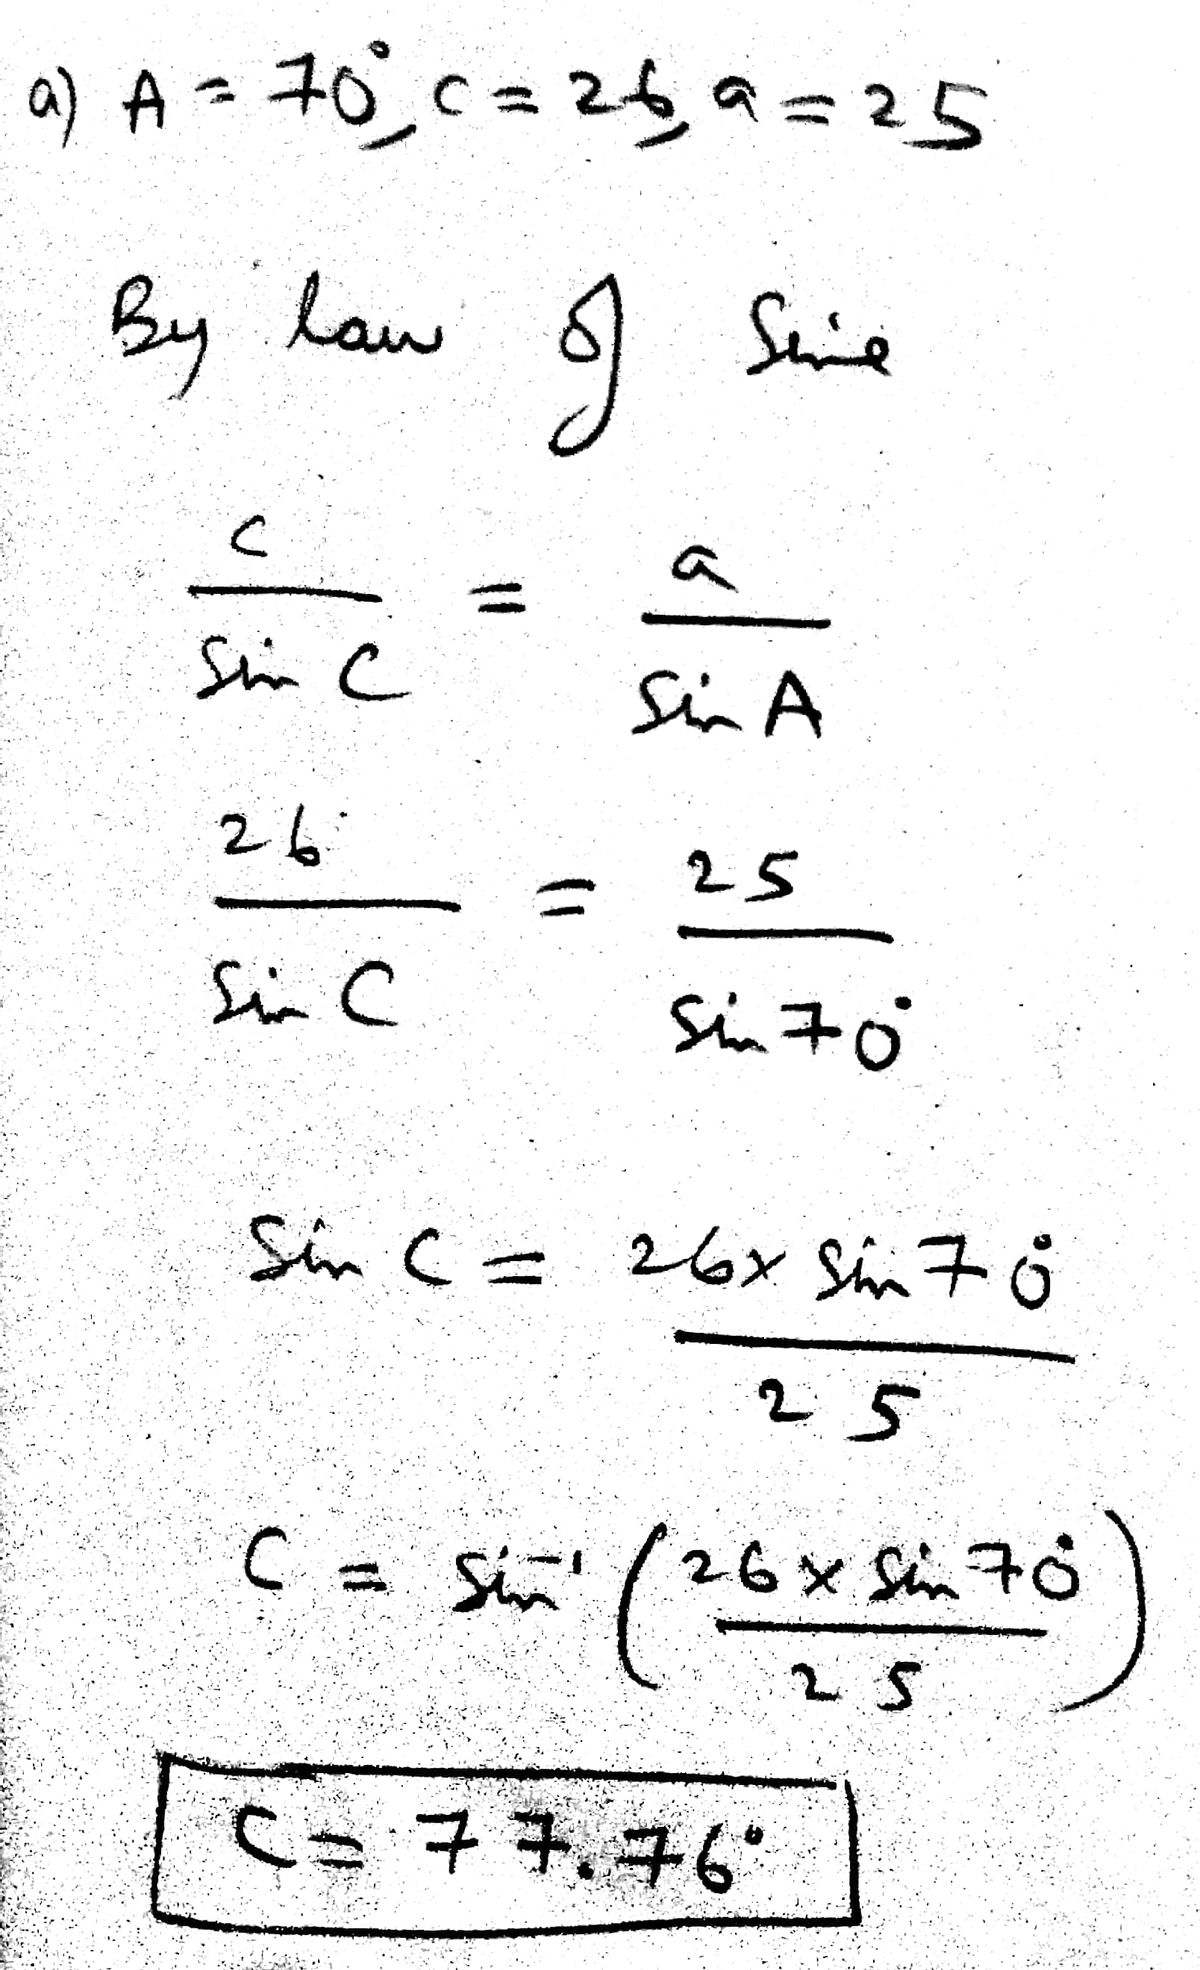 a) A = 70°, c = 26, a = 25
By law of Sine
c / Sin C = a / Sin A
26 / Sin C = 25 / Sin 70°
Sin C = 26 x Sin 70° / 25
C = Sin⁻¹ ( 26 x Sin 70° / 25 )
C = 77.76°